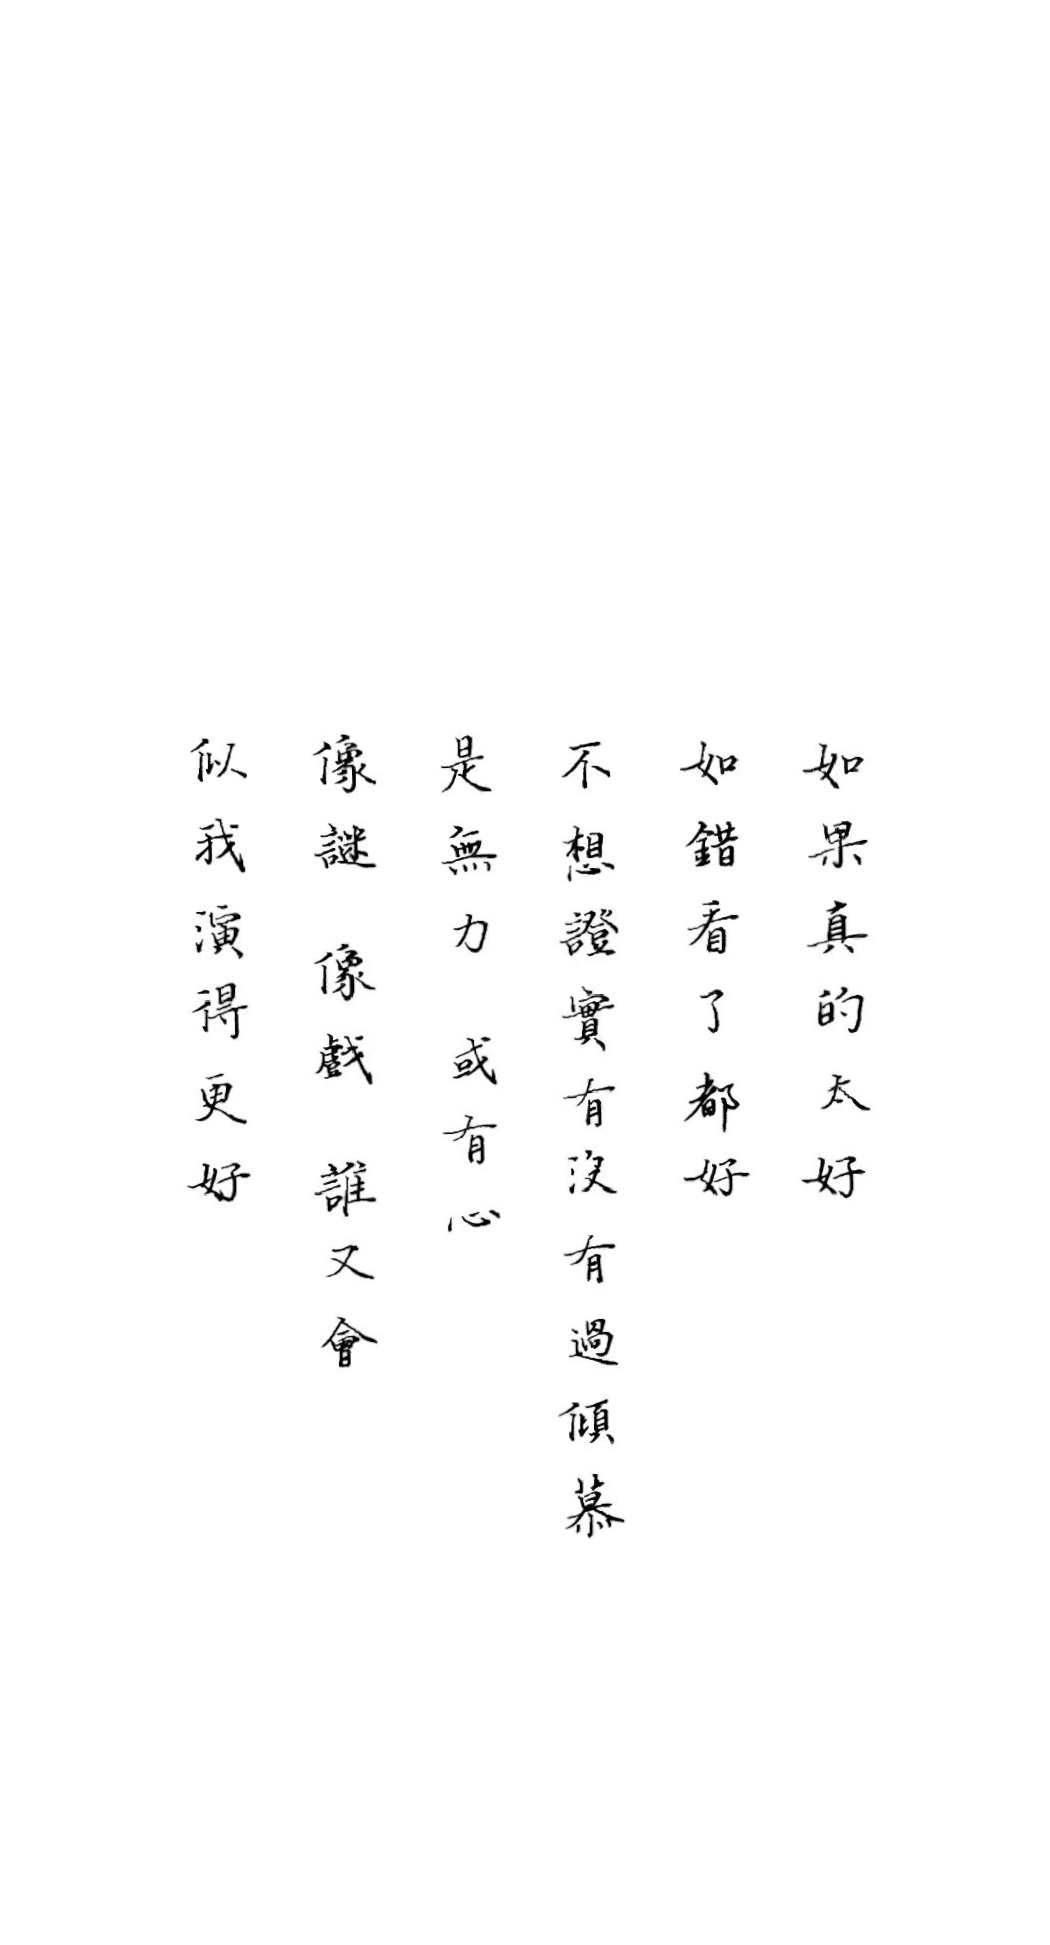 如果真的太好
如錯看了都好
不想證實有沒有過傾慕
是無力 或有心
像謎 像戲 誰又會
似我演得更好